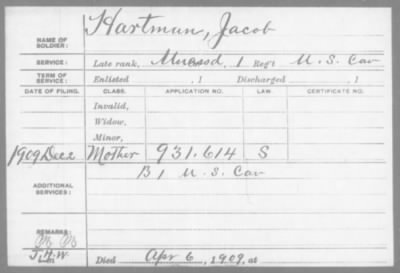 NAME OF SOLDIER: Hartman, Jacob
SERVICE: Late rank, 1 Reg't U.S. Cav
TERM OF SERVICE: Enlisted , 1 Discharged , 1
DATE OF FILING. CLASS. APPLICATION NO. LAW. CERTIFICATE NO.
Invalid,
Widow,
Minor,
1909 Dec 2 Mother 931.614 S
ADDITIONAL SERVICES: B 1 U.S. Cav
REMARKS:
Died Apr 6, 1909, at